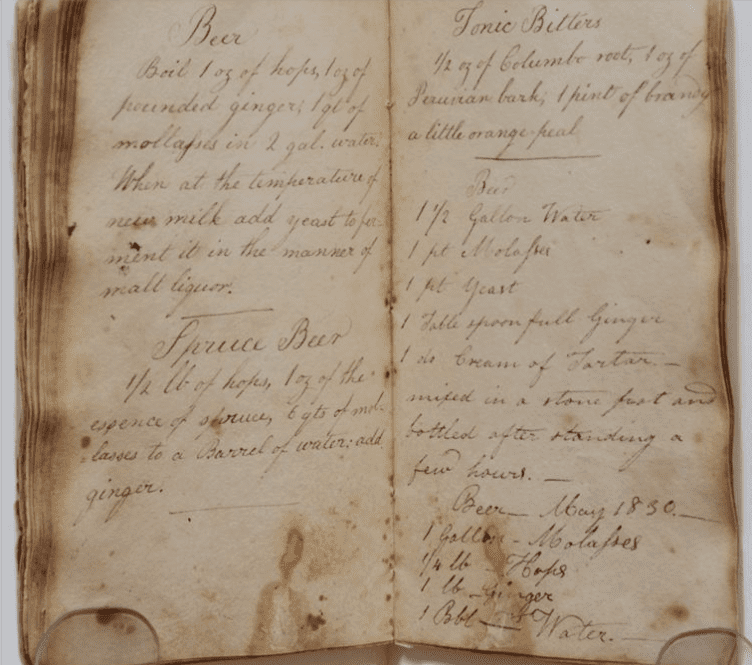 Beer
Boil 1 oz of hops, 1 oz of
pounded ginger; 1 qt of
mollasses in 2 gal. water.
When at the temperature of
new milk add yeast to fer-
ment it in the manner of
malt liquor.
Spruce Beer
1/2 lb of hops, 1 oz of the
essence of spruce, 6 qts of mol-
lasses to a Barrel of water; add
ginger.
Tonic Bitters
1/2 oz of Columbo root, 1 oz of
Peruvian bark, 1 pint of brandy
a little orange peal
Beer
1 1/2 Gallon Water
1 pt Molasses
1 pt Yeast
1 Table spoonfull Ginger
1 do Cream of Tartar —
mixed in a stone and
bottled after standing a
few hours. —
Beer — May 1830. —
1 Gallon - Molasses
1/4 lb - Hops
1 lb - Ginger
1 Bbl — Water. —